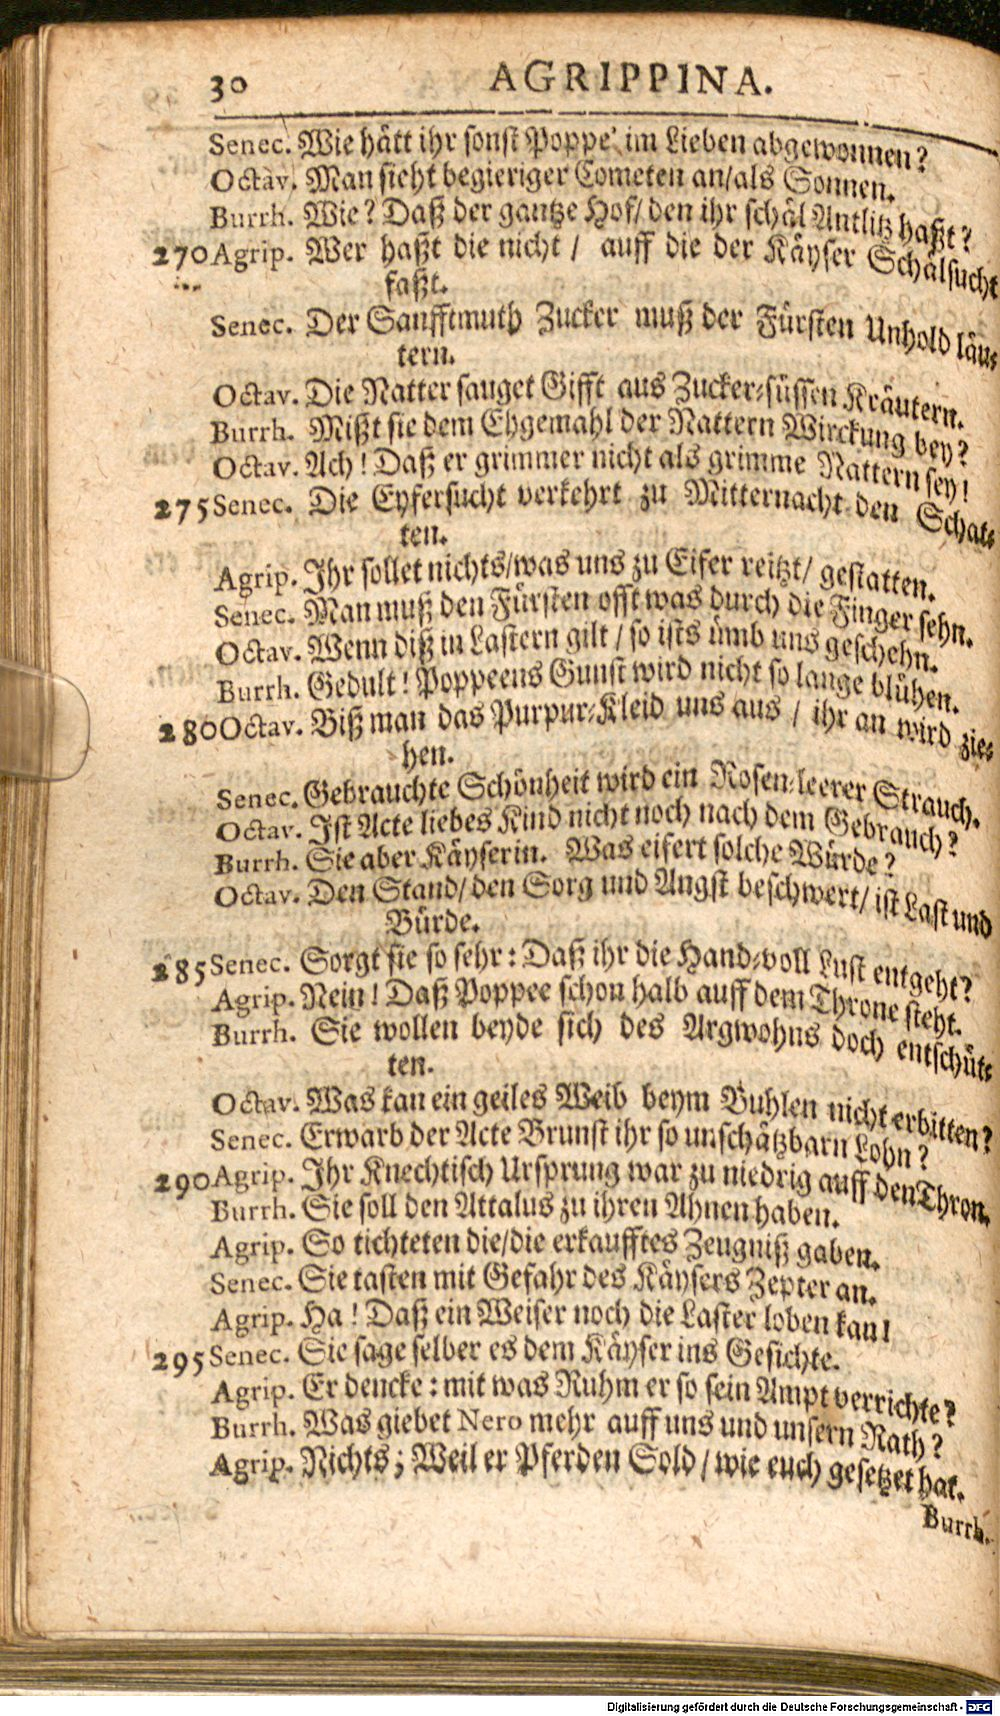 30 AGRIPPINA.
Senec. Wie hätt ihr sonst Poppe' im Lieben abgewonnen?
Octav. Man sieht begieriger Cometen an/als Sonnen.
Burrh. Wie? Daß der gantze Hof/den ihr schäl Antlitz haßt?
270 Agrip. Wer haßt die nicht / auff die der Käyser Schälsucht
faßt.
Senec. Der Sanfftmuth Zucker muß der Fürsten Unhold läu-
tern.
Octav. Die Natter sauget Gifft aus Zucker-süssen Kräutern.
Burrh. Mißt sie dem Ehgemahl der Nattern Wirckung bey?
Octav. Ach! Daß er grimmer nicht als grimme Nattern sey!
275 Senec. Die Eyfersucht verkehrt zu Mitternacht den Schat-
ten.
Agrip. Ihr sollet nichts/was uns zu Eifer reitzt/ gestatten.
Senec. Man muß den Fürsten offt was durch die Finger sehn.
Octav. Wenn diß in Lastern gilt / so ists ümb uns geschehn.
Burrh. Gedult! Poppeens Gunst wird nicht so lange blühen.
280 Octav. Biß man das Purpur-Kleid uns aus / ihr an wird zie-
hen.
Senec. Gebrauchte Schönheit wird ein Rosen-leerer Strauch.
Octav. Ist Acte liebes Kind nicht noch nach dem Gebrauch?
Burrh. Sie aber Käyserin. Was eifert solche Würde?
Octav. Den Stand/den Sorg und Angst beschwert/ ist Last und
Bürde.
285 Senec. Sorgt sie so sehr: Daß ihr die Hand-voll Lust entgeht?
Agrip. Nein! Daß Poppee schon halb auff dem Throne steht.
Burrh. Sie wollen beyde sich des Argwohns doch entschüt-
ten.
Octav. Was kan ein geiles Weib beym Buhlen nicht erbitten?
Senec. Erwarb der Acte Brunst ihr so unschätzbarn Lohn?
290 Agrip. Ihr Knechtisch Ursprung war zu niedrig auff den Thron.
Burrh. Sie soll den Attalus zu ihren Ahnen haben.
Agrip. So tichteten die/die erkaufftes Zeugniß gaben.
Senec. Sie tasten mit Gefahr des Käysers Zepter an.
Agrip. Ha! Daß ein Weiser noch die Laster loben kan!
295 Senec. Sie sage selber es dem Käyser ins Gesichte.
Agrip. Er dencke: mit was Ruhm er so sein Ampt verrichte?
Burrh. Was giebet Nero mehr auff uns und unsern Rath?
Agrip. Nichts; Weil er Pferden Sold / wie euch gesetzet hat.
Burrh.
Digitalisierung gefördert durch die Deutsche Forschungsgemeinschaft - DFG